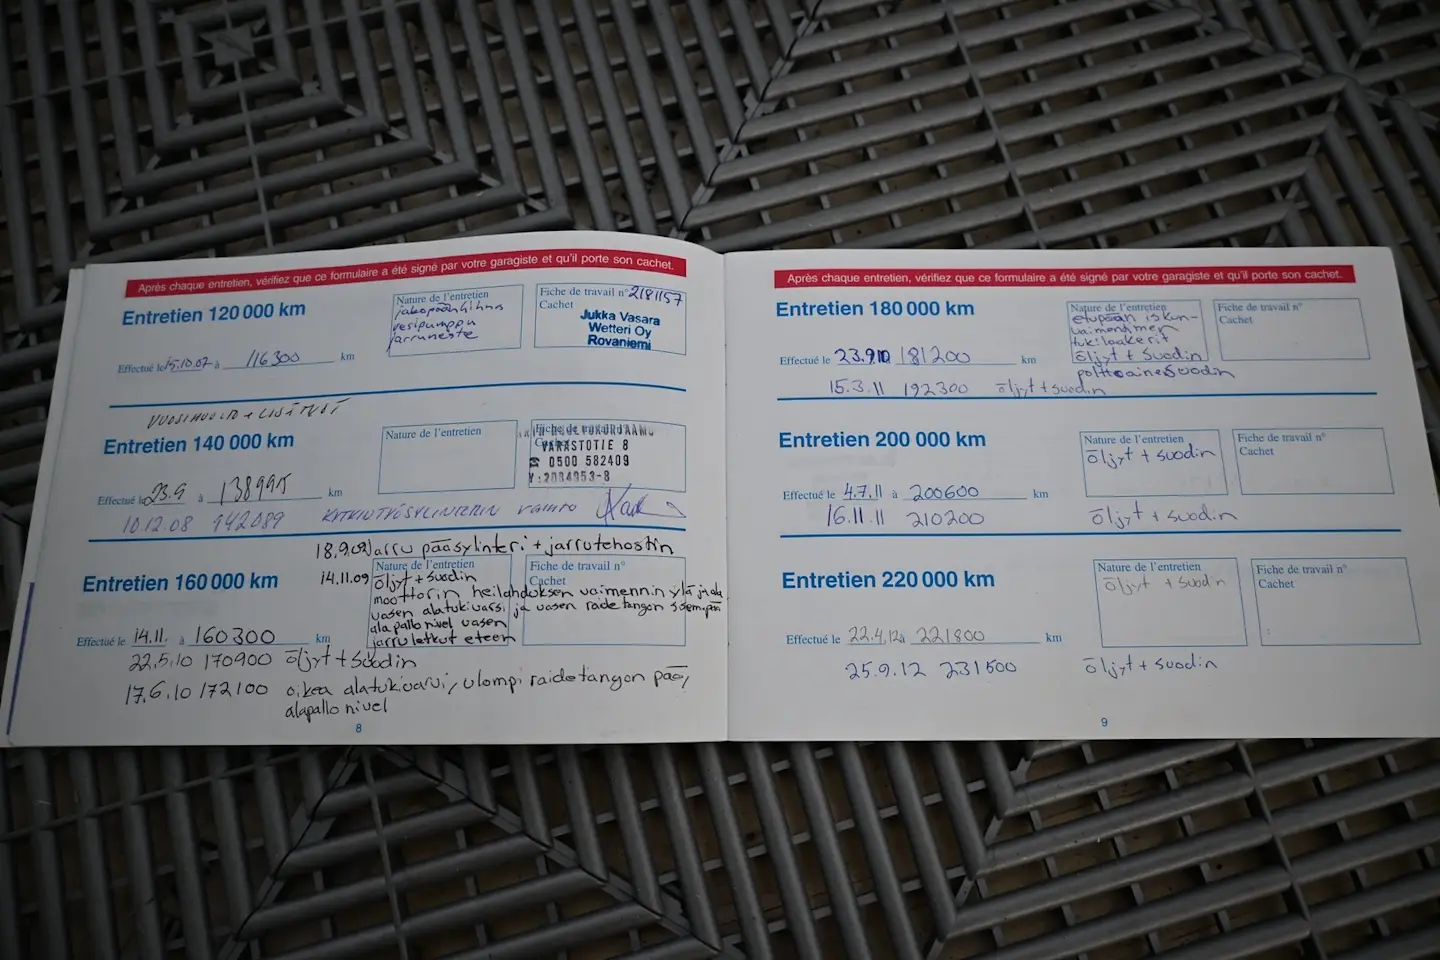 Après chaque entretien, vérifiez que ce formulaire a été signé par votre garagiste et qu'il porte son cachet.
Entretien 120 000 km
Nature de l'entretien
jakopäänhihna
vesipumppu
jarruneste
Fiche de travail n° 2181157
Cachet
Jukka Vasara
Wetteri Oy
Rovaniemi
Effectué le 15.10.07 à 116300 km
VUOSIHUOLTO + LISÄTYÖT
Entretien 140 000 km
Nature de l'entretien
Fiche de travail n°
Cachet
VARASTOTIE 8
☎ 0500 582409
Y:2084953-8
Effectué le 23.9 à 138995 km
10.12.08 142089 KYTKINTYÖSYLINTERIN vaihto
18.9.09 Jarru pääsylinteri + jarrutehostin
Entretien 160 000 km
14.11.09
Nature de l'entretien
öljyt + suodin
moottorin heilahduksen vaimennin ylä ja ala
vasen alatukivarsi ja vasen raidetangon sisempi pää
alapallo nivel vasen
jarruletkut eteen
Fiche de travail n°
Cachet
Effectué le 14.11. à 160300 km
22.5.10 170900 öljyt + suodin
17.6.10 172100 oikea alatukivarvi, ulompi raidetangon pää,
alapallo nivel
8
Après chaque entretien, vérifiez que ce formulaire a été signé par votre garagiste et qu'il porte son cachet.
Entretien 180 000 km
Nature de l'entretien
etupään iskun-
vaimentimen
tukilaakerit
öljyt + suodin
polttoainesuodin
Fiche de travail n°
Cachet
Effectué le 23.9.10 181200 km
15.3.11 192300 öljyt + suodin
Entretien 200 000 km
Nature de l'entretien
öljyt + suodin
Fiche de travail n°
Cachet
Effectué le 4.7.11 à 200600 km
16.11.11 210200 öljyt + suodin
Entretien 220 000 km
Nature de l'entretien
öljyt + suodin
Fiche de travail n°
Cachet
Effectué le 22.4.12 à 221800 km
25.9.12 231500 öljyt + suodin
9